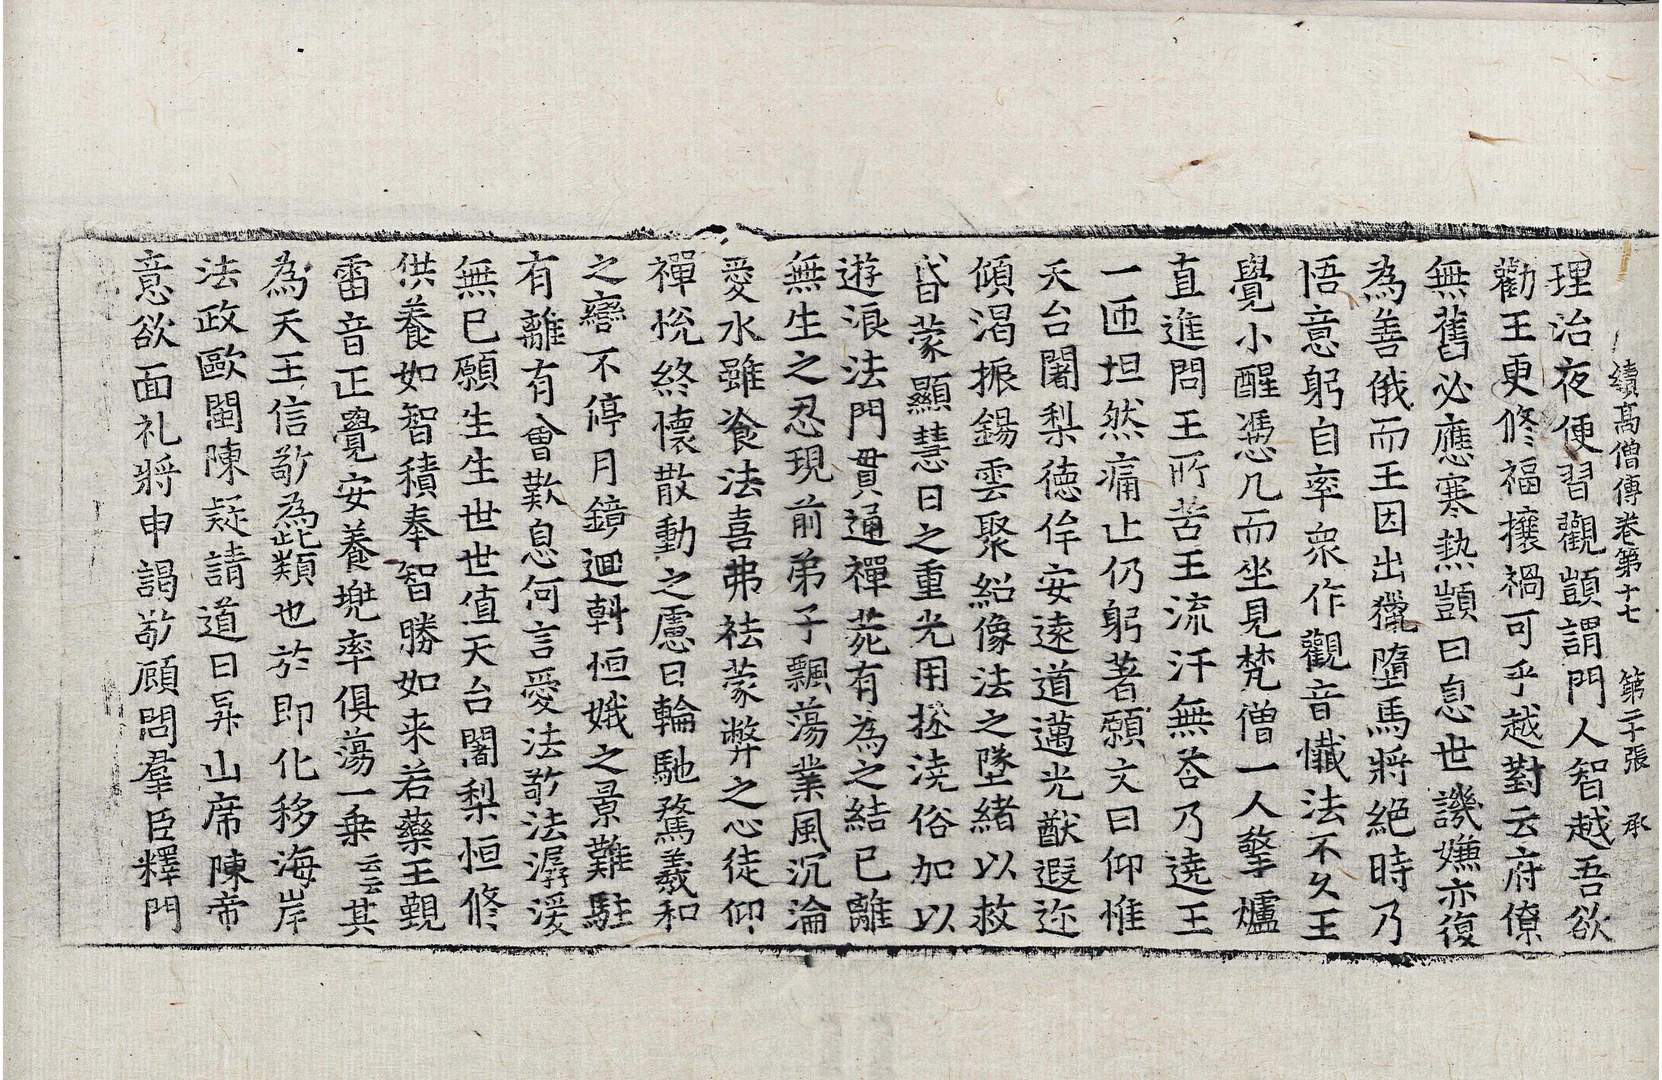 續高僧傳卷第十七 第二十張 承
理治夜便習觀顗謂門人智越吾欲
勸王更修福攘禍可乎越對云府僚
無舊必應寒熱顗曰息世譏嫌亦復
為善俄而王因出獵墮馬將絕時乃
悟意躬自率衆作觀音懺法不久王
覺小醒憑几而坐見梵僧一人擎爐
直進問王所苦王流汗無荅乃遶王
一匝坦然痛止仍躬著願文曰仰惟
天台闍梨德侔安遠道邁光猷遐迩
傾渴振錫雲聚紹像法之墜緒以救
昏蒙顯慧日之重光用拯澆俗加以
遊浪法門貫通禪苑有為之結已離
無生之忍現前弟子飄蕩業風沉淪
愛水雖飡法喜弗祛蒙弊之心徒仰
禪悅終懷散動之慮日輪馳騖羲和
之轡不停月鏡迴斡恒娥之景難駐
有離有會歎息何言愛法敬法潺湲
無已願生生世世值天台闍梨恒修
供養如智積奉智勝如来若藥王覲
雷音正覺安養兠率俱蕩一乗云云其
為天王信敬為此類也於即化移海岸
法政歐閩陳疑請道日昇山席陳帝
意欲面礼將申謁敬顧問羣臣釋門